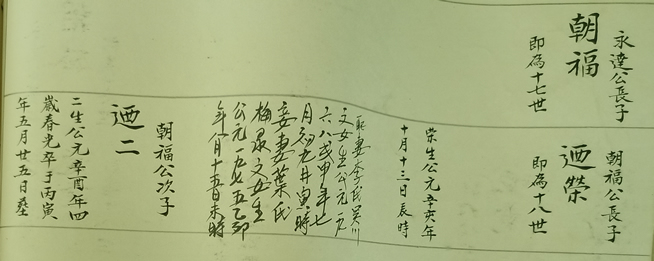 永達公長子
朝福
即為十七世
朝福公長子
迺榮
即為十八世
榮生公元辛亥年
十月十三日辰時
配妻李氏吴川
文女生公元一九
六八戊申年七
月初九丑寅時
妾妻葉氏
梅菉文女生
公元一九七五乙卯
年八月十五日未時
朝福公次子
迺二
二生公元辛酉年四
歲春光卒于丙寅
年五月廿五日塟